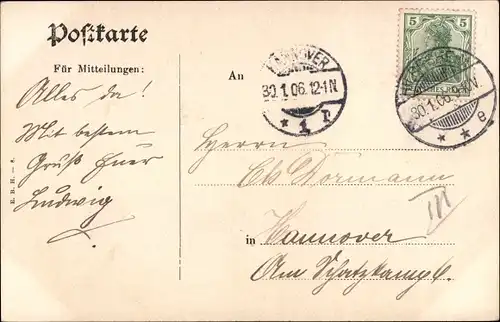 Postkarte
Für Mitteilungen:
An
Alles da!
Mit bestem
Gruß Euer
Ludwig
E. B. H. - 8.
5 5
HANNOVER
30.1.06.12-1N
* 1 r
30.1.06. N.
* * e
Herrn
Dormann
in Hannover
Am Schatzkamp 6.
III